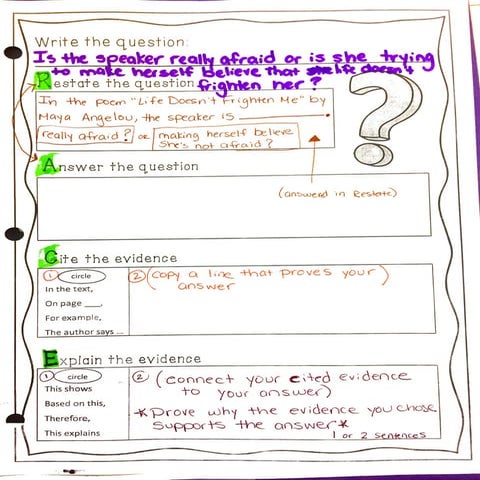 Write the question:
Is the speaker really afraid or is she trying
to make herself believe that life doesn't
frighten her?
Restate the question
In the poem "Life Doesn't Frighten Me" by
Maya Angelou, the speaker is
really afraid? or making herself believe
She's not afraid?
Answer the question
(answered in Restate)
Cite the evidence
① circle ② (copy a line that proves your)
In the text, answer
On page ___,
For example,
The author says ...
Explain the evidence
① circle ② (connect your cited evidence
This shows to your answer)
Based on this, *Prove why the evidence you chose
Therefore, supports the answer*
This explains 1 or 2 sentences